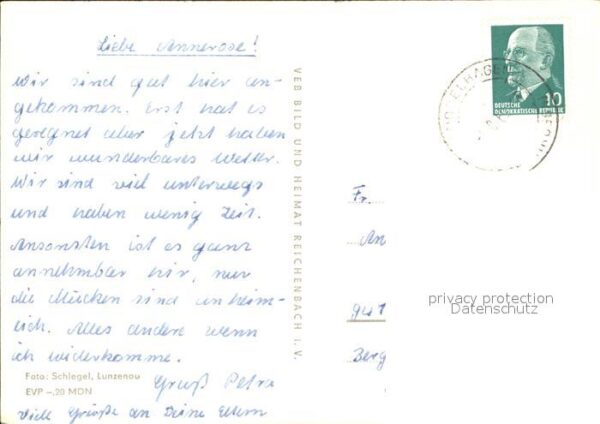 Liebe Annerose!
Wir sind gut hier an-
gekommen. Erst hat es
geregnet aber jetzt haben
wir wunderbares Wetter.
Wir sind viel unterwegs
und haben wenig Zeit.
Ansonsten ist es ganz
annehmbar hir, nur
die Mücken sind unheim-
lich. Alles andere wenn
ich widerkomme.
Gruß Petra
Viele Grüße an Deine Eltern
Foto: Schlegel, Lunzenau
EVP -,20 MDN
VEB BILD UND HEIMAT REICHENBACH I. V.
10
DEUTSCHE
DEMOKRATISCHE REPUBLIK
Fr.
An
Berg
privacy protection
Datenschutz